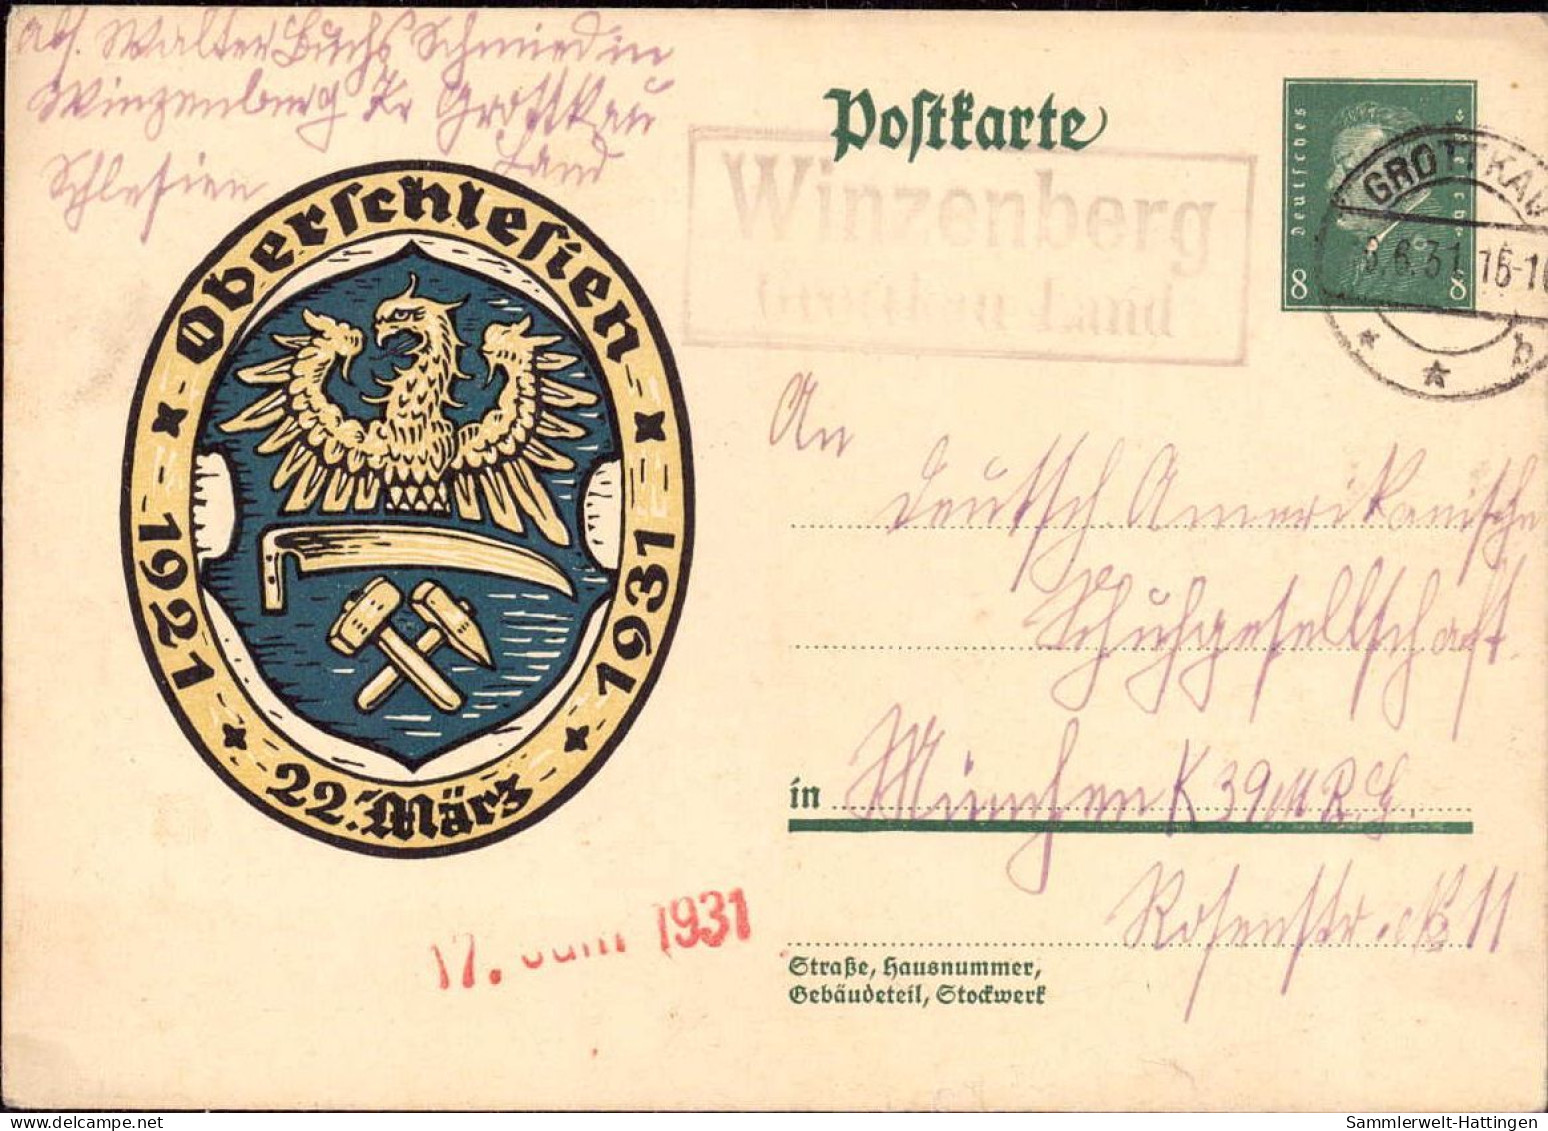 Abs. Walter Buchs Schmied in
Winzenberg Kr Grottkau
Land
Schlesien
Postkarte
Deutsches Reich
8 8
GROTTKAU
6.31 16-1
b
Winzenberg
Grottkau Land
Oberschlesien
1921 1931
22. März
An
Deutsch Amerikanische
Schuhgesellschaft
in München K 39 M.R.G.
Rosenstr. No 11
Straße, Hausnummer,
Gebäudeteil, Stockwerk
17. Juni 1931
Sammlerwelt-Hattingen